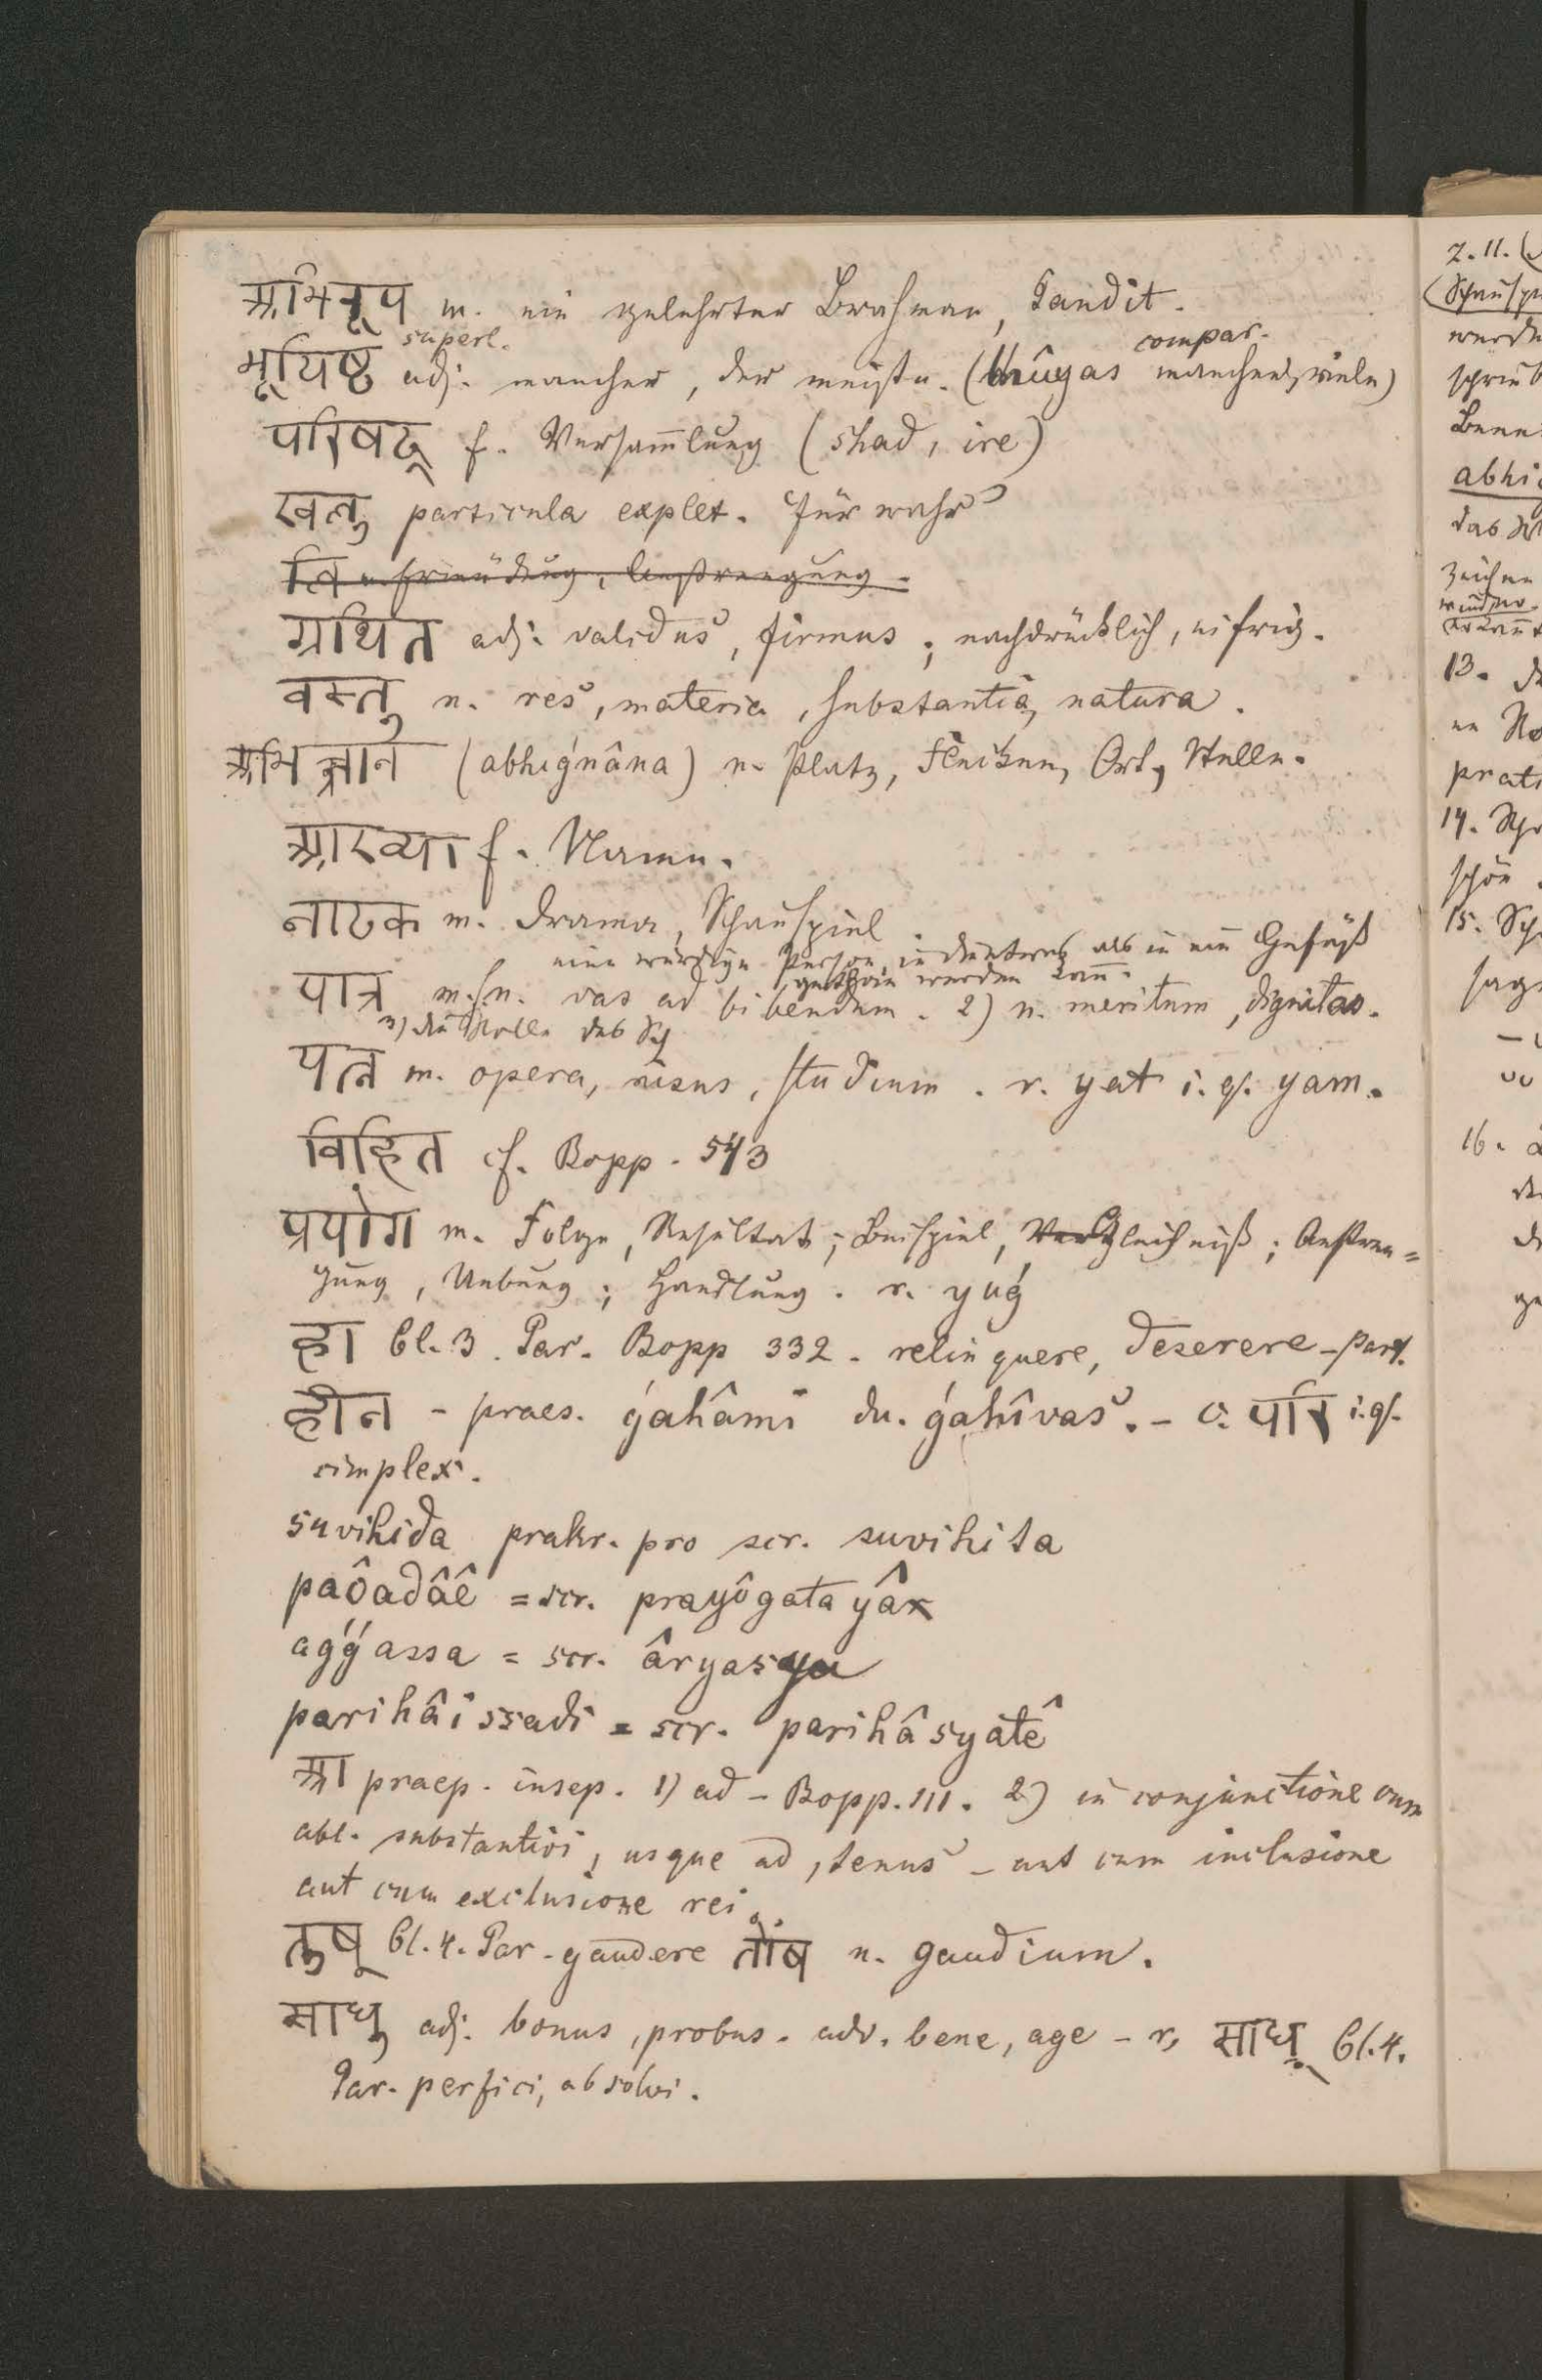 अभिरूप m. ein gelehrter Brahman, Pandit.
superl. compar.
भूयिष्ठ adj. mancher, der meiste. (bhûyas mancher, viele)
परिषद् f. Versam̄lung (shad, ire)
खलु particula explet. fürwahr
ग्रथित adj. validus, firmus; nachdrücklich, eifrig.
वस्तु n. res, materia, substantia, natura.
अभिज्ञान (abhiǵnâna) n. Platz, Flecken, Ort, Stelle.
आख्या f. Name.
नाटक m. Drama, Schauspiel.
eine würdige Person, in als in ein Gefäß
werden kan̄.
पात्र m.f.n. vas ad bibendum. 2) n. meritum, dignitas.
3) die Rolle des
यत्न m. opera, nisus, studium. r. yat i. q. yam.
विहित cf. Bopp. 543
प्रयोग m. Folge, Resultat; Beispiel, Vergleichniß; Anstren=
gung, Uebung; Handlung. r. yuǵ
हा Cl. 3. Par. Bopp 332. relinquere, deserere - part.
हीन - praes. ǵahâmi du. ǵahîvas. - c. परि i.q.
simplex.
suvihida prakr. pro scr. suvihita
paôadâê = scr. prayôgatayâ
aǵǵassa = scr. âryasya
parihâissadi = scr. parihâsyatê
आ praep. insep. 1) ad - Bopp. 111. 2) in conjunctione cum
abl. substantivi, usque ad, tenus - aut cum inclusione
aut cum exclusione rei.
तुष् Cl. 4. Par. gaudere तोष n. gaudium.
साधु adj. bonus, probus. adv. bene, age - r. साध् Cl. 4.
Par. perfici, absolvi.
Z. 11.
abhi
13.
prati
14.
schön
15.
16.